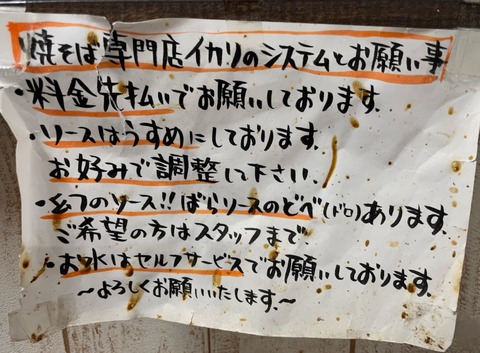 焼そば専門店イカリのシステムとお願い事
・料金先払いでお願いしております。
・ソースはうすめにしております。
お好みで調整して下さい。
・幻のソース!!ばらソースのどべ(ドロ)あります。
ご希望の方はスタッフまで
・お水はセルフサービスでお願いしております。
〜よろしくお願いいたします。〜